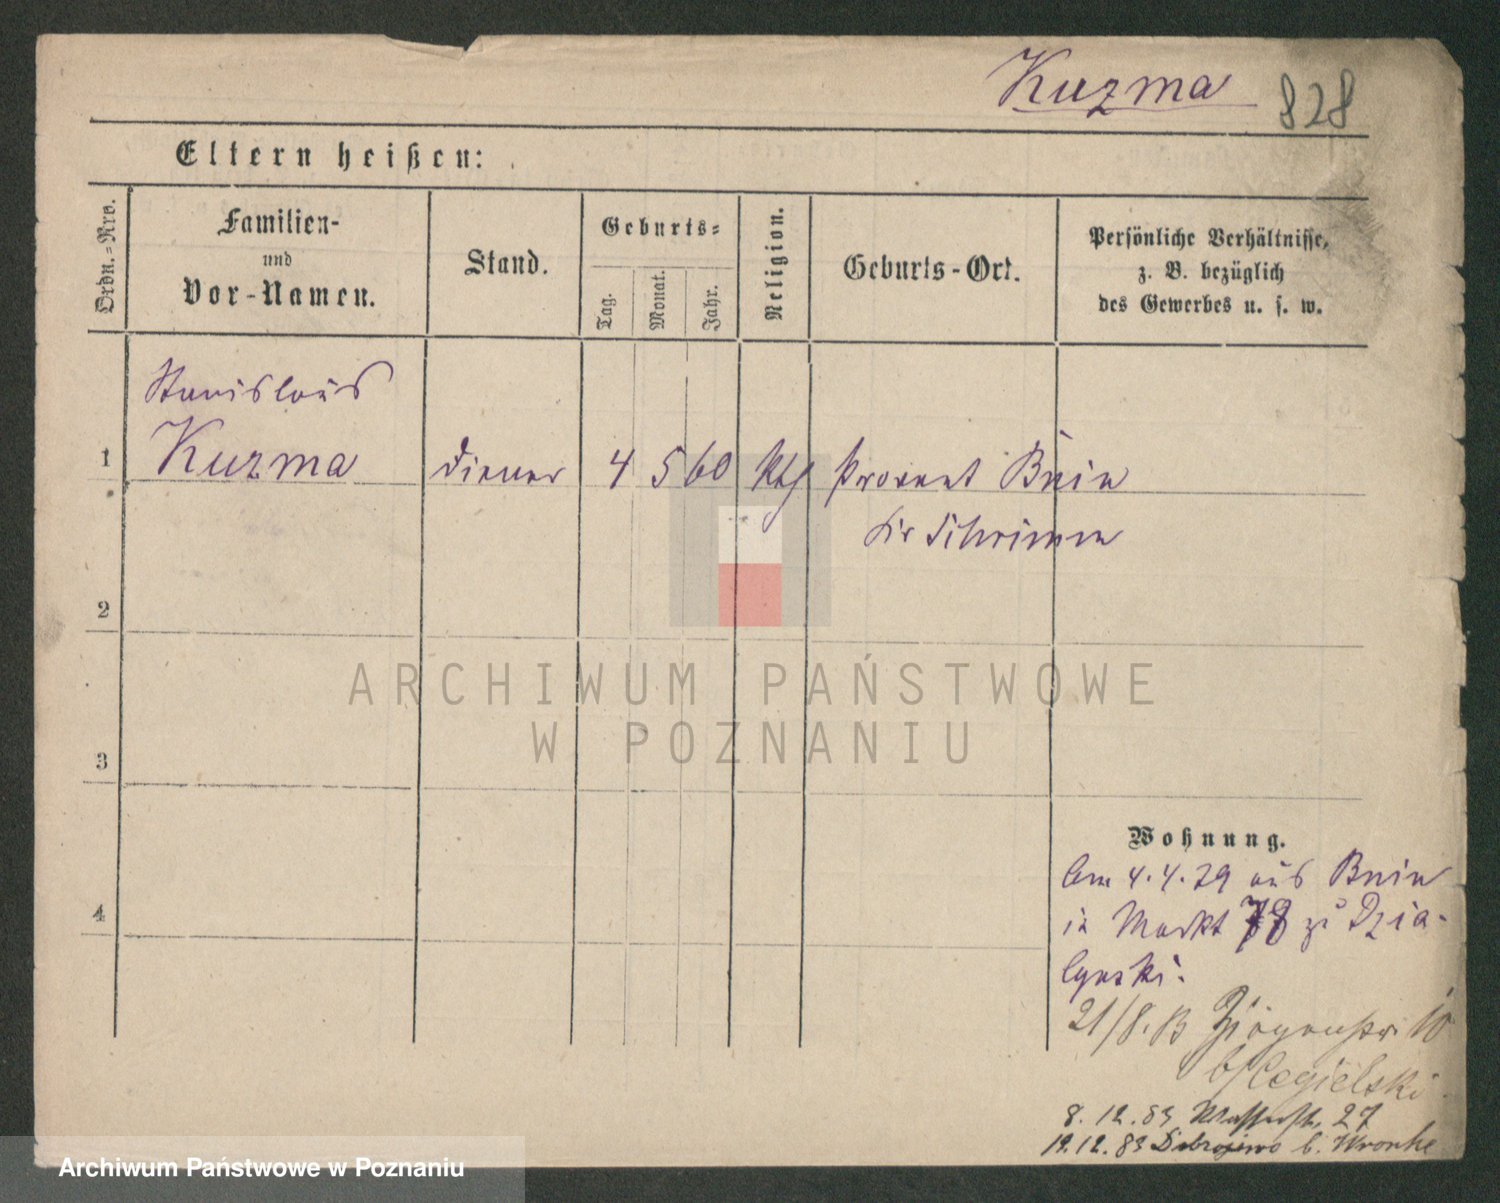 Kuzma 828
Eltern heißen:
Ordn.-Nro.
Familien-
und
Vor-Namen.
Stand.
Geburts-
Tag.
Monat.
Jahr.
Religion.
Geburts-Ort.
Persönliche Verhältnisse,
z. B. bezüglich
des Gewerbes u. s. w.
Stanislaus
1 Kuzma Diener 4 5 60 Kth Provent Bnin
Kr Schrimm
2
3
4
Wohnung.
Am 4.4.79 aus Bnin
in Markt 78 zu Dzia-
lynski.
21/8. Ziegenstr. 10
b/Cegielski.
8.12.83 Wasserstr. 27
19.12.83 Dobrojewo b. Wronke
ARCHIWUM PAŃSTWOWE
W POZNANIU
Archiwum Państwowe w Poznaniu